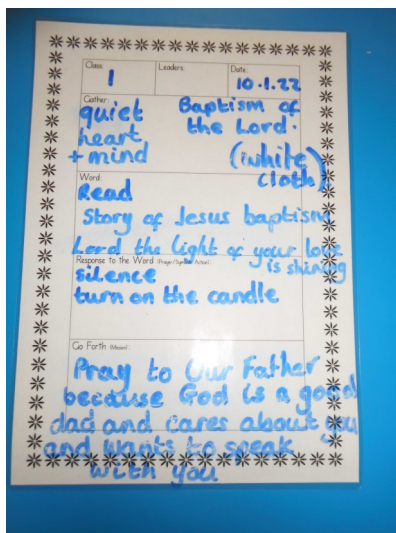 Class: Leaders: Date:
1 10.1.22
Gather
quiet Baptism of
heart the Lord.
+ mind (white
cloth)
Word:
Read
Story of Jesus baptism
Lord the light of your love
is shining
Response to the Word (Prayer/Symbol/Action):
silence
turn on the candle
Go Forth (Mission):
Pray to Our Father
because God is a good
dad and cares about you
and wants to speak
with you